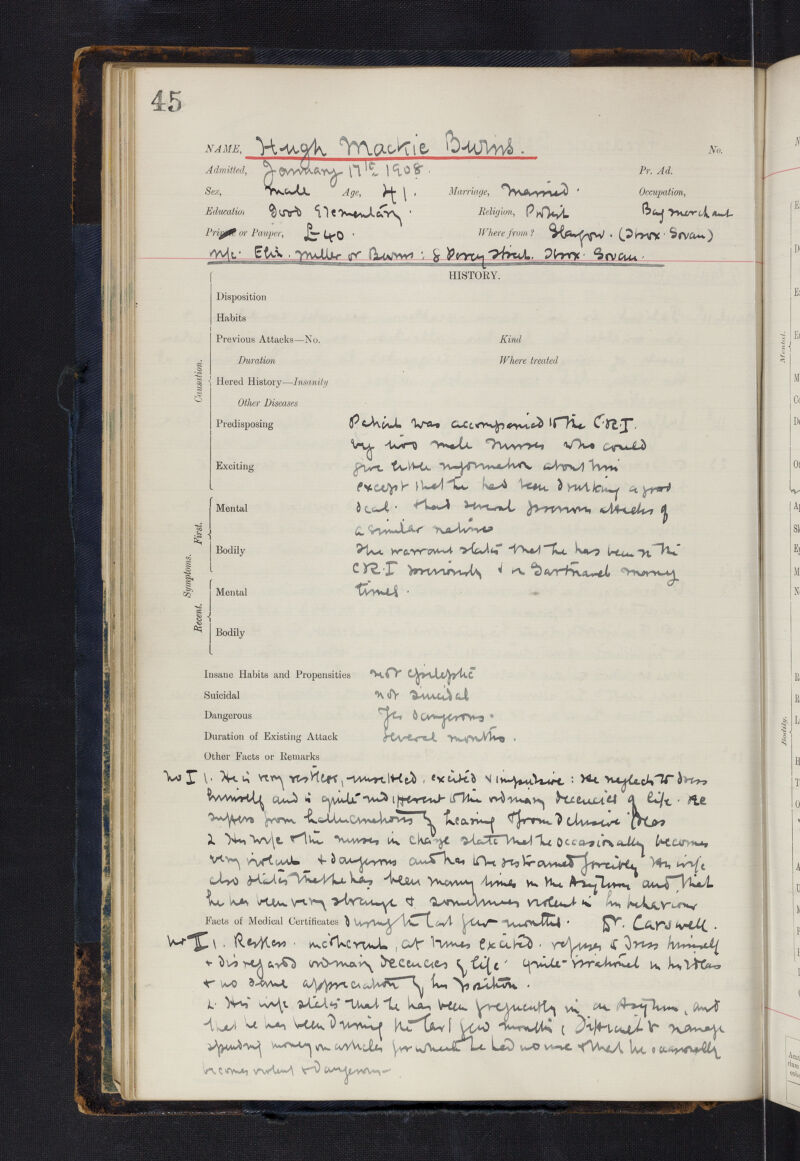 45
NAME, Hugh Mackie Burns. No.
Admitted, January 17th 1908. Pr. Ad.
Sex, male Age, 41. Marriage, Married. Occupation,
Education Good Elementary. Religion, Bag merchant
or Pauper, £40. Where from? Glasgow. (Ibrox Govan)
Wife. Eliz. Miller or Burns: 8 Street. Ibrox. Govan.
HISTORY.
Disposition
Habits
Previous Attacks—No. Kind
Duration Where treated
Causation.
Hered History—Insanity
Other Diseases
Predisposing Patient was accompanied to the C.R.I.
by two male nurses who could
Exciting give little information about him
except that he had been drinking a good
Symptoms. First.
Mental deal. & had several previous attacks of
a similar nature
Bodily The warrant states that he has been in the
C.R.I previously & in Gartnavel many
Recent.
Mental times.
Bodily
Insane Habits and Propensities not epileptic
Suicidal not suicidal
Dangerous Yes dangerous.
Duration of Existing Attack several months.
Other Facts or Remarks
No I 1. He is very restless, unsettled, excited & impulsive: He neglects to dress
himself and is quite indifferent to the ordinary decencies of life. He
suffers from hallucinations of hearing & from delusive ideas
2 His wife & the nurses in charge state that he occasionally becomes
very violent & dangerous and has to be restrained forcibly His wife
also states that he has been many times in the Asylum and that
he has been very strange & sometimes violent in his behaviour
Facts of Medical Certificates during the last few months. Dr. Carswell.
No II 1. Restless. incoherent, at times excited. refuses to dress himself
& disregards ordinary decencies of life. quite irrational in his ideas
& no sane appreciation of his position.
2. His wife states that he has been frequently in an Asylum, and
that he has been during the last few months difficult to manage
spending money on articles for which he had no use & that he occasionally
becomes violent & dangerous